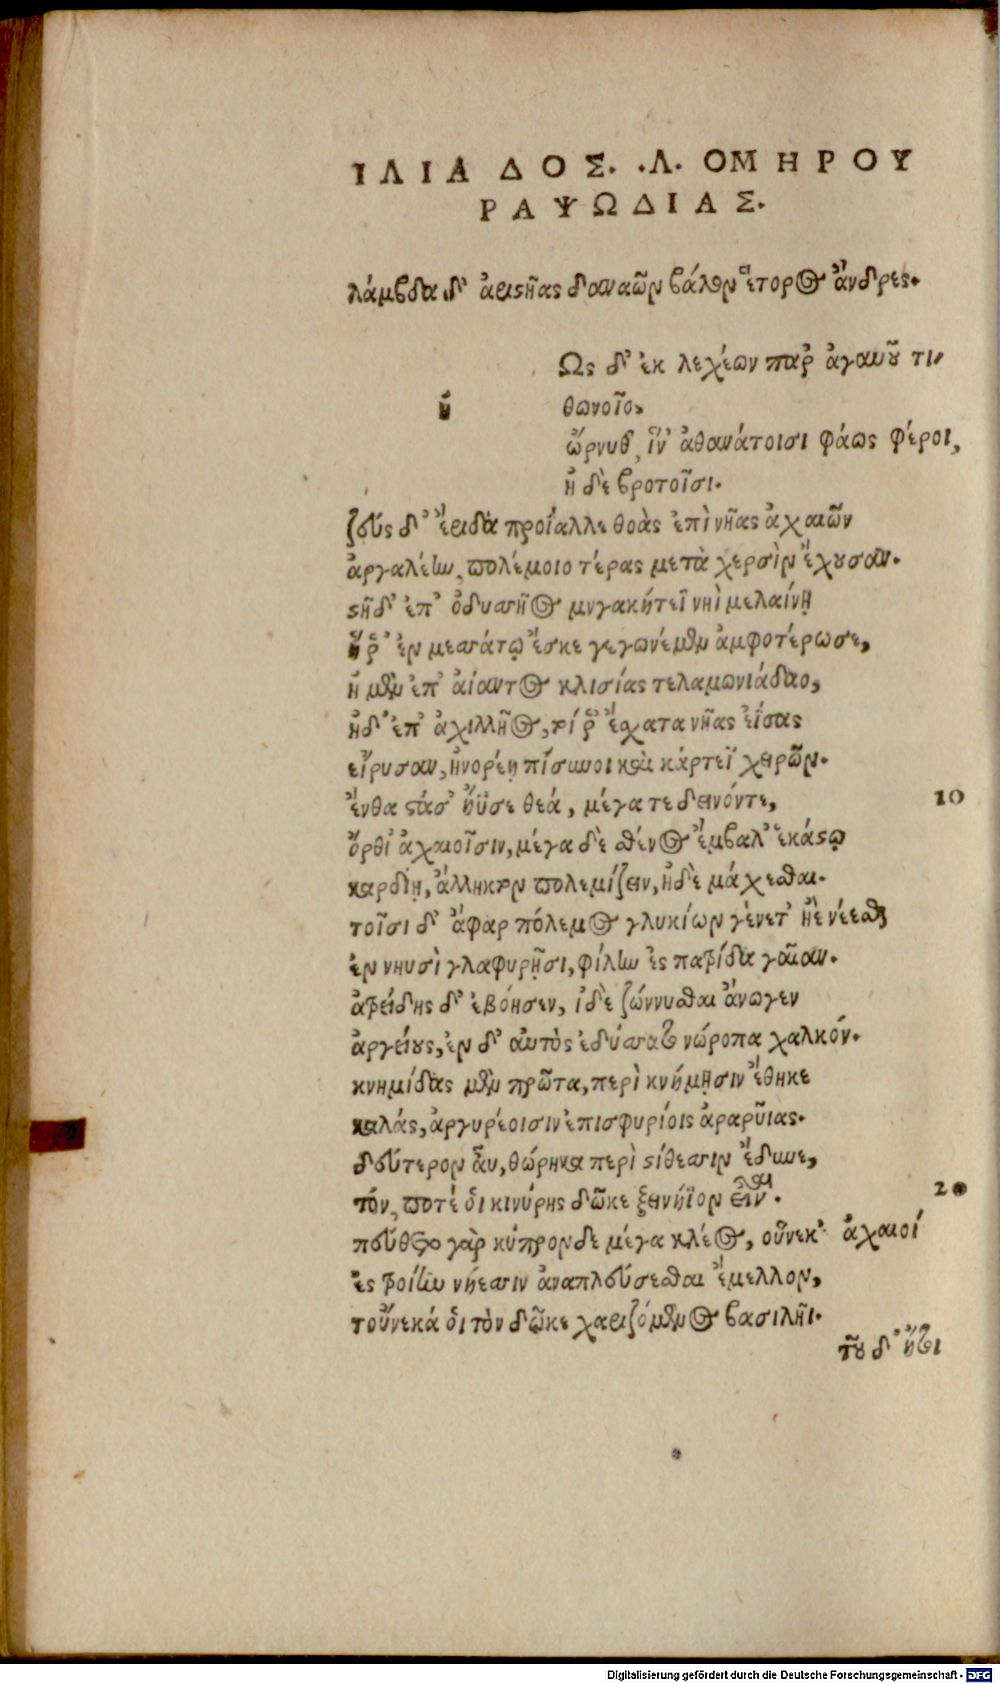 ΙΛΙΑΔΟΣ. .Λ. ΟΜΗΡΟΥ
ΡΑΨΩΔΙΑΣ.
λάμβδα δ' ἀριστῆας δαναῶν βάλον ἕκτορος ἄνδρες.
Ως δ' ἐκ λεχέων παρ' ἀγαυοῦ τι-
ἠ
θωνοῖο,
ὤρνυθ', ἵν' ἀθανάτοισι φάως φέροι,
ἠδὲ βροτοῖσι.
ζεὺς δ' ἔριδα προΐαλλε θοὰς ἐπὶ νῆας ἀχαιῶν
ἀργαλέην, πολέμοιο τέρας μετὰ χερσὶν ἔχουσαν.
στῆ δ' ἐπ' ὀδυσσῆος μεγακήτεϊ νηὶ μελαίνῃ
ἥ ῥ' ἐν μεσσάτῳ ἔσκε γεγωνέμεν ἀμφοτέρωσε,
ἠ μὲν ἐπ' αἴαντος κλισίας τελαμωνιάδαο,
ἠδ' ἐπ' ἀχιλλῆος, τοί ῥ' ἔσχατα νῆας ἐΐσας
εἴρυσαν, ἠνορέῃ πίσυνοι καὶ κάρτεϊ χειρῶν.
ἔνθα στᾶσ' ἤϋσε θεά, μέγα τε δεινόν τε,
10
ὄρθι' ἀχαιοῖσιν, μέγα δὲ σθένος ἔμβαλ' ἑκάστῳ
καρδίῃ, ἄλληκτον πολεμίζειν, ἠδὲ μάχεσθαι.
τοῖσι δ' ἄφαρ πόλεμος γλυκίων γένετ' ἠὲ νέεσθαι
ἐν νηυσὶ γλαφυρῇσι, φίλην ἐς πατρίδα γαῖαν.
ἀτρείδης δ' ἐβόησεν, ἰδὲ ζώννυσθαι ἄνωγεν
ἀργείους, ἐν δ' αὐτὸς ἐδύσατο νώροπα χαλκόν.
κνημίδας μὲν πρῶτα, περὶ κνήμῃσιν ἔθηκε
καλάς, ἀργυρέοισιν ἐπισφυρίοις ἀραρῦιας.
δεύτερον αὖ, θώρηκα περὶ στήθεσσιν ἔδυνε,
τόν, ποτέ οἱ κινύρης δῶκε ξεινήϊον εἶναι.
20
πεύθετο γὰρ κύπρονδε μέγα κλέος, οὕνεκ' ἀχαιοί
ἐς τροίην νήεσσιν ἀναπλεύσεσθαι ἔμελλον,
τοὔνεκά οἱ τὸν δῶκε χαριζόμενος βασιλῆϊ.
τοῦ δ' ἤτοι